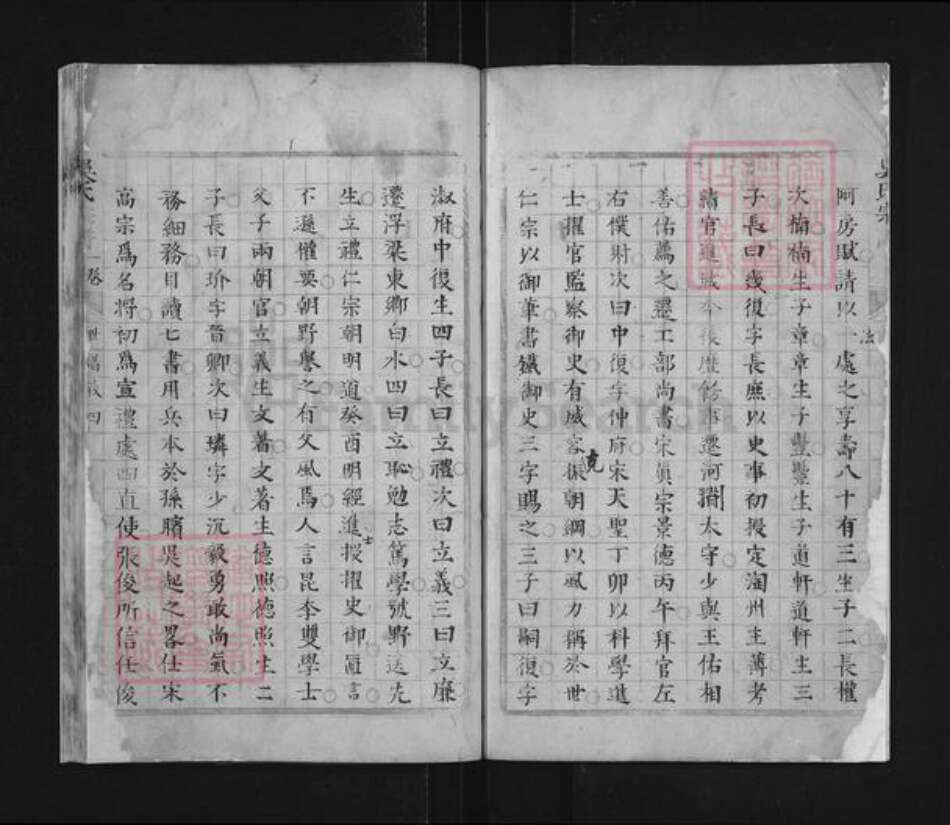 吳氏宗
阿房賦請以一處之享壽八十有三生子二長權
次楠楠生子章章生子豐豐生子道軒道軒生三
子長曰幾復字長庶以史事初授定淘州主薄考
績官進城令後歷餘事遷河澗太守少與王佑相
善佑薦之遷工部尚書宋眞宗景德丙午拜官左
右僕射次曰中復字仲府宋天聖丁卯以科學進
士擢官監察御史有威容振朝綱以風力稱於世
克
仁宗以御筆書鐵御史三字賜之三子曰嗣復字
淑府中復生四子長曰立禮次曰立義三曰立廉
遷浮梁東鄉白水四曰立恥勉志篤學號野送先
生立禮仁宗朝明道癸酉明經進授擢史御 言
士
不遜權要朝野譽之有父風焉人言昆李雙學士
父子兩朝官立義生文著文著生德照德照生二
子長曰玠字晉卿次曰璘字少沉毅勇敢尚氣不
務細務目讀七書用兵本於孫臏吳起之畧仕宋
高宗爲名將初爲宣禮處四直使張俊所信任俊
吳氏 一卷 世 四